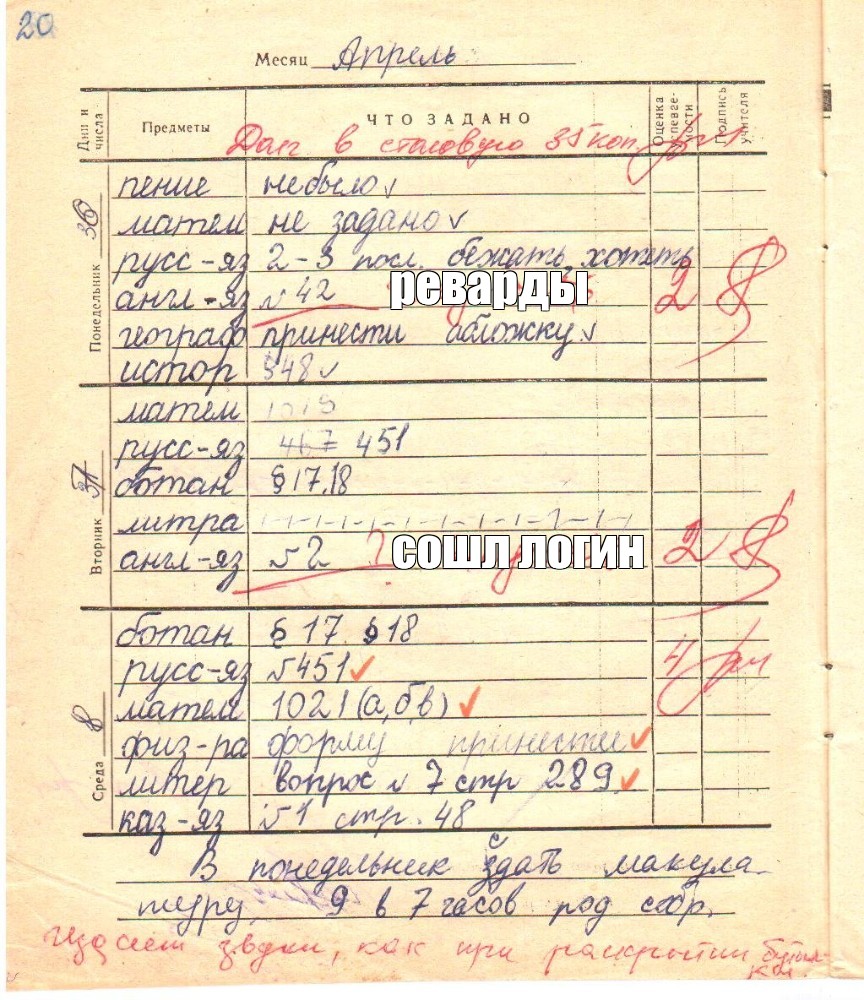 20
Месяц Апрель
Дни и числа
Предметы
ЧТО ЗАДАНО
Оценка успеваемости
Подпись учителя
Долг в столовую 35 коп.
Понедельник
пение не было ✓
матем не задано ✓
русс-яз 2-3 посл. бежать, хотеть
англ-яз №42 реварды 2
географ принести обложку ✓
истор §48 ✓
Вторник
матем 1019
русс-яз 467 451
ботан § 17.18
литра
англ-яз №2 сошл логин 2
Среда 8
ботан § 17 § 18
русс-яз №451 ✓ 4
матем 1021 (а, б, в) ✓
физ-ра форму принести ✓
литер вопрос №7 стр 289 ✓
каз-яз №1 стр. 48
В понедельник сдать макула
туру, 9 в 7 часов род собр.
Издает звуки, как при раскрытии бутыл-
ки.